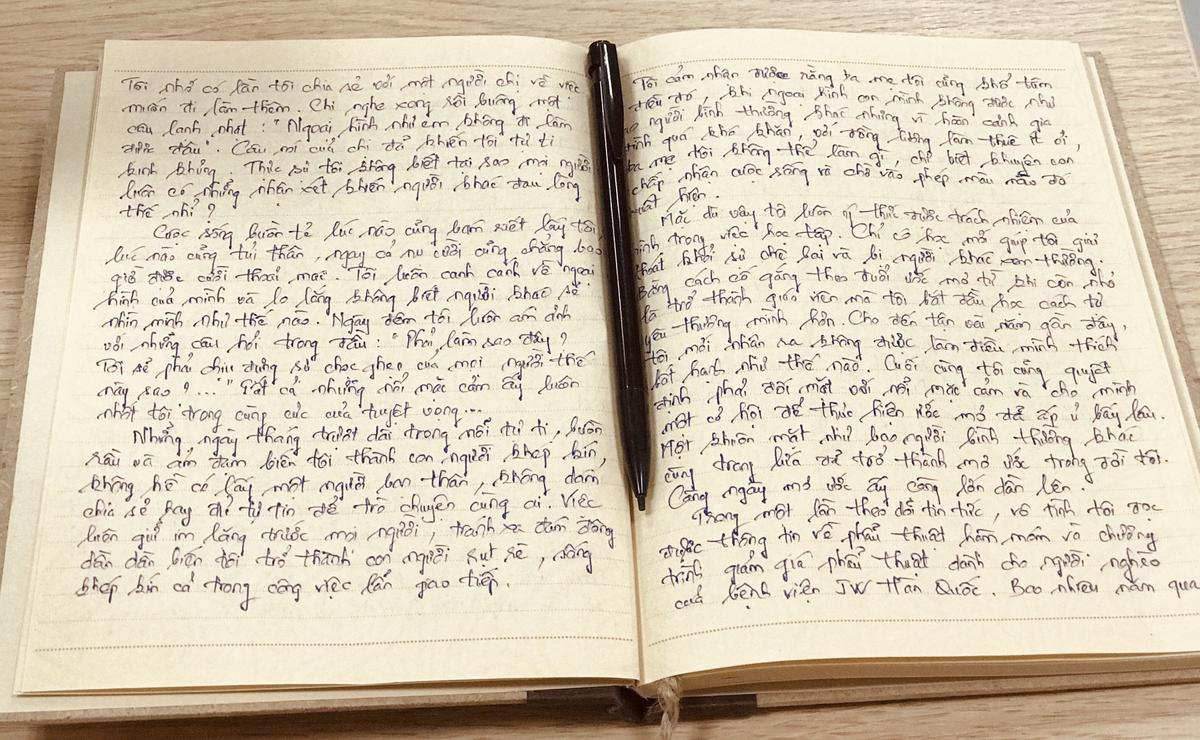 Tôi nhớ có lần tôi chia sẻ với một người chị về việc
muốn đi làm thêm. Chị nghe xong rồi buông một
câu lạnh nhạt: "Ngoại hình như em không đi làm
được đâu". Câu nói của chị đã khiến tôi tự ti
kinh khủng. Thực sự tôi không biết tại sao mọi người
luôn có những nhận xét khiến người khác đau lòng
thế nhỉ?
Cuộc sống buồn tẻ lúc nào cũng bám riết lấy tôi,
lúc nào cũng tủi thân, ngay cả nụ cười cũng chẳng bao
giờ được cười thoải mái. Tôi luôn canh cánh về ngoại
hình của mình và lo lắng không biết người khác sẽ
nhìn mình như thế nào. Ngày đêm tôi luôn ám ảnh
với những câu hỏi trong đầu: "Phải làm sao đây?
Tôi sẽ phải chịu đựng sự chọc ghẹo của mọi người thế
này sao?..." Tất cả những nỗi mặc cảm ấy luôn
nhốt tôi trong cùng cực của tuyệt vọng...
Những ngày tháng trượt dài trong nỗi tự ti, buồn
rầu và ảm đạm biến tôi thành con người khép kín,
không hề có lấy một người bạn thân, không dám
chia sẻ hay đủ tự tin để trò chuyện cùng ai. Việc
luôn giữ im lặng trước mọi người, tránh xa đám đông
dần dần biến tôi trở thành con người rụt rè, sống
khép kín cả trong công việc lẫn giao tiếp.
Tôi cảm nhận được rằng ba mẹ tôi cũng khổ tâm
điều đó, khi ngoại hình con mình không được như
người bình thường khác nhưng vì hoàn cảnh gia
đình quá khó khăn, với đồng lương làm thuê ít ỏi,
ba mẹ tôi không thể làm gì, chỉ biết khuyên con
chấp nhận cuộc sống và chờ vào phép màu nào đó
xuất hiện.
Mặc dù vậy tôi luôn ý thức được trách nhiệm của
mình trong việc học tập. Chỉ có học mới giúp tôi giải
thoát khỏi sự chê bai và bị người khác xem thường.
Bằng cách cố gắng theo đuổi ước mơ từ khi còn nhỏ
là trở thành giáo viên mà tôi bắt đầu học cách tự
yêu thương mình hơn. Cho đến tận vài năm gần đây,
tôi mới nhận ra không được làm điều mình thích
bất hạnh như thế nào. Cuối cùng tôi cũng quyết
định phải đối mặt với nỗi mặc cảm và cho mình
một cơ hội để thực hiện ước mơ để ấp ủ bấy lâu.
Một khuôn mặt như bao người bình thường khác
cũng trong lứa để trở thành mơ ước trong đời tôi.
Càng ngày mơ ước ấy càng lớn dần lên.
Trong một lần theo dõi tin tức, vô tình tôi đọc
được thông tin về phẫu thuật hàm móm và chương
trình giảm giá phẫu thuật dành cho người nghèo
của bệnh viện JW Hàn Quốc. Bao nhiêu năm qua